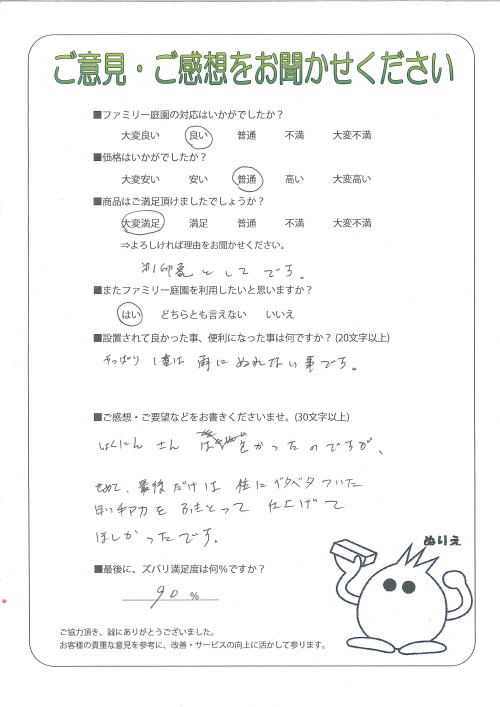 ご意見・ご感想をお聞かせください
■ファミリー庭園の対応はいかがでしたか?
大変良い 良い 普通 不満 大変不満
■価格はいかがでしたか?
大変安い 安い 普通 高い 大変高い
■商品はご満足頂けましたでしょうか?
大変満足 満足 普通 不満 大変不満
⇒よろしければ理由をお聞かせください。
印象としてです。
■またファミリー庭園を利用したいと思いますか?
はい どちらとも言えない いいえ
■設置されて良かった事、便利になった事は何ですか? (20文字以上)
やっぱり 1番は 雨にぬれない事です。
■ご感想・ご要望などをお書きくださいませ。(30文字以上)
しょくにん さん は 良かったのですが、
せめて、最後だけは 柱にベタベタついた
をふきとって 仕上げて
ほしかったです。
ぬりえ
■最後に、ズバリ満足度は何%ですか?
90 %
ご協力頂き、誠にありがとうございました。
お客様の貴重な意見を参考に、改善・サービスの向上に活かして参ります。